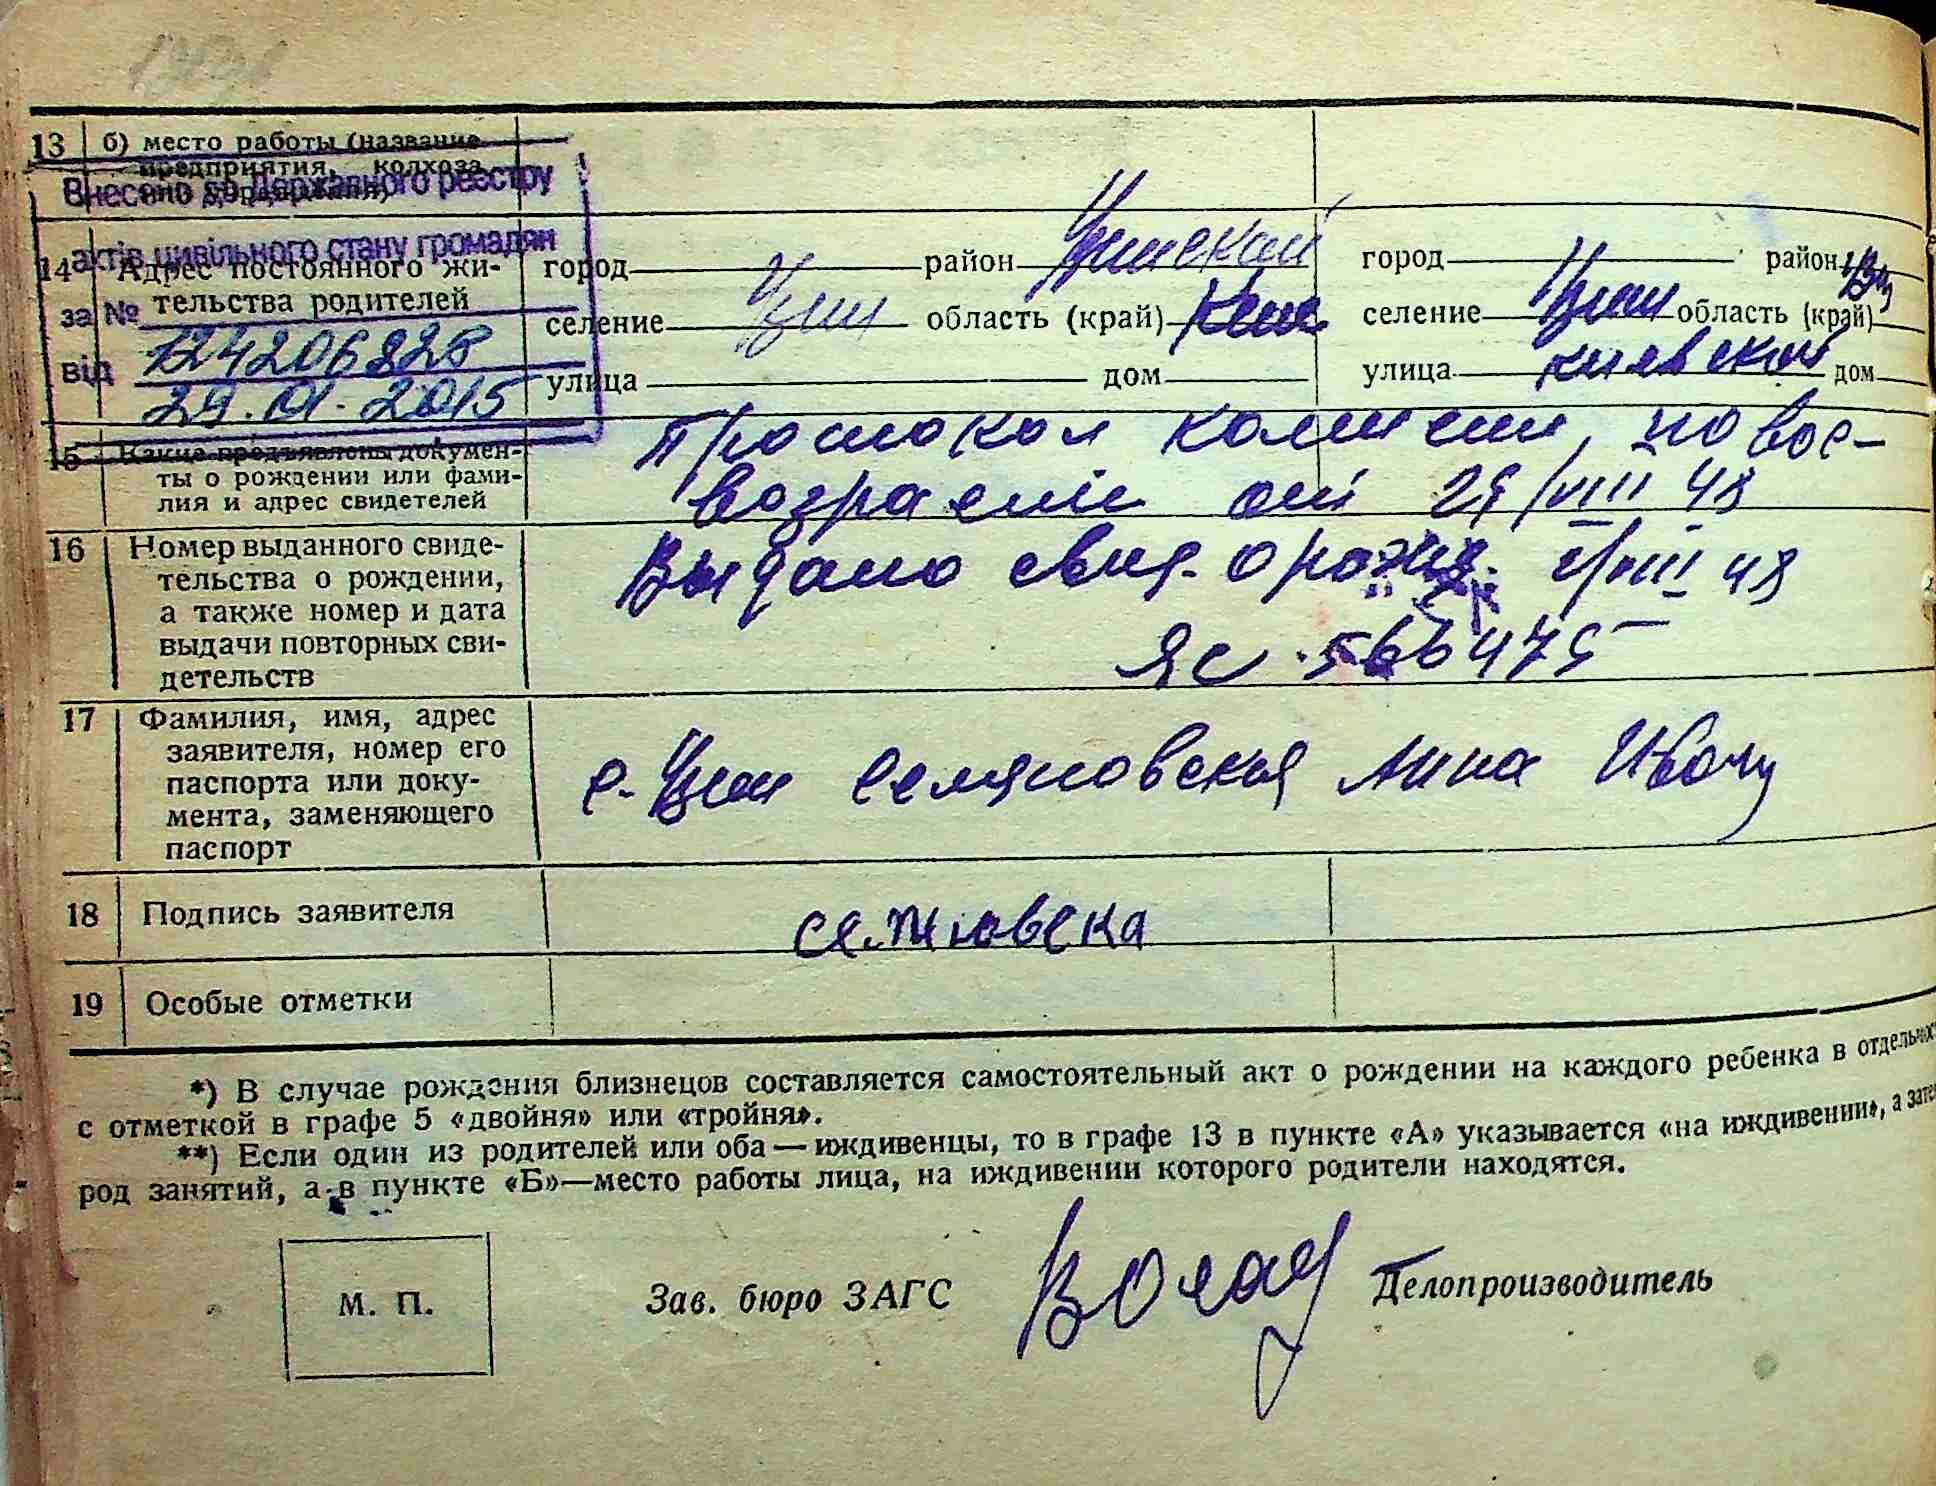 13 б) место работы (название
предприятия, колхоза
Внесено до Державного реєстру
актів цивільного стану громадян
14 Адрес постоянного жи-
тельства родителей
за №
124206228
від 29.01.2015
город район город район
селение область (край) селение область (край)
улица дом улица Киевской дом
15 Какие предъявлены докумен-
ты о рождении или фами-
лия и адрес свидетелей
Протокол по вос-
от 29/VIII 48
16 Номер выданного свиде-
тельства о рождении,
а также номер и дата
выдачи повторных сви-
детельств
Выдано свид. о рожд. VIII 48
ЯС 566475
17 Фамилия, имя, адрес
заявителя, номер его
паспорта или доку-
мента, заменяющего
паспорт
с. Анна
18 Подпись заявителя
19 Особые отметки
*) В случае рождения близнецов составляется самостоятельный акт о рождении на каждого ребенка в
с отметкой в графе 5 «двойня» или «тройня».
**) Если один из родителей или оба — иждивенцы, то в графе 13 в пункте «А» указывается «на иждивении», а
род занятий, а в пункте «Б»—место работы лица, на иждивении которого родители находятся.
М. П. Зав. бюро ЗАГС Делопроизводитель